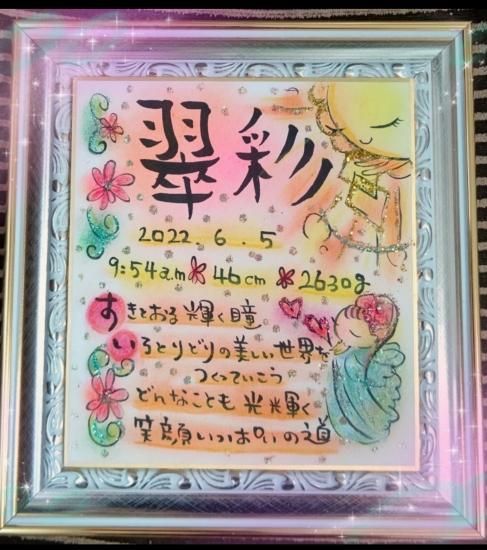 翠彩
2022.6.5
9:54a.m 46cm 2630g
すきとおる輝く瞳
いろとりどりの美しい世界を
つくっていこう
どんなことも光輝く
笑顔いっぱいの道